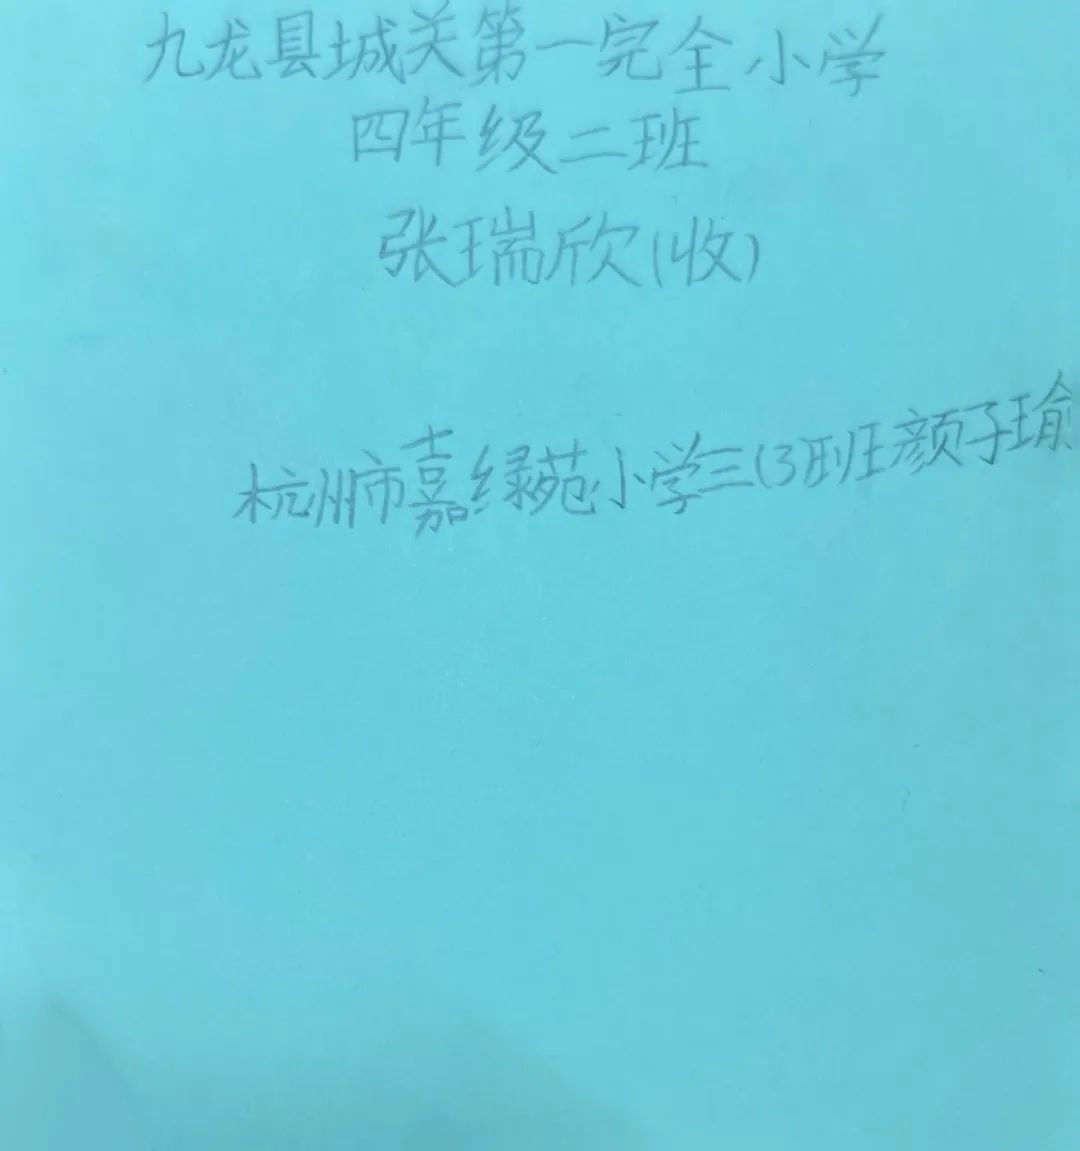 九龙县城关第一完全小学
四年级二班
张瑞欣(收)
杭州市嘉绿苑小学三(3)班颜子瑜